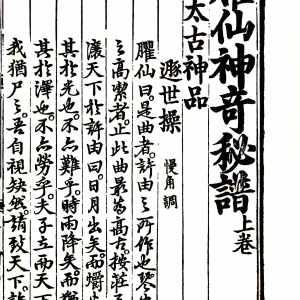 臞仙神奇秘譜上卷
太古神品
遯世操 慢角調
臞仙曰是曲者許由之所作也琴
之高潔者止此曲最爲高古按莊子
讓天下於許由曰日月出矣而爝
其於光也不亦難乎時雨降矣而猶
其於澤也不亦勞乎夫子立而天下
我猶尸之吾自視缺然請致天下